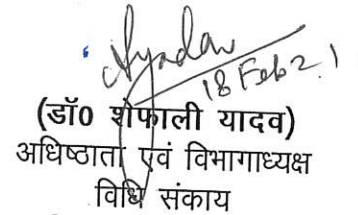 Syadav
18 Feb 21
(डॉ0 शेफाली यादव)
अधिष्ठाता एवं विभागाध्यक्ष
विधि संकाय